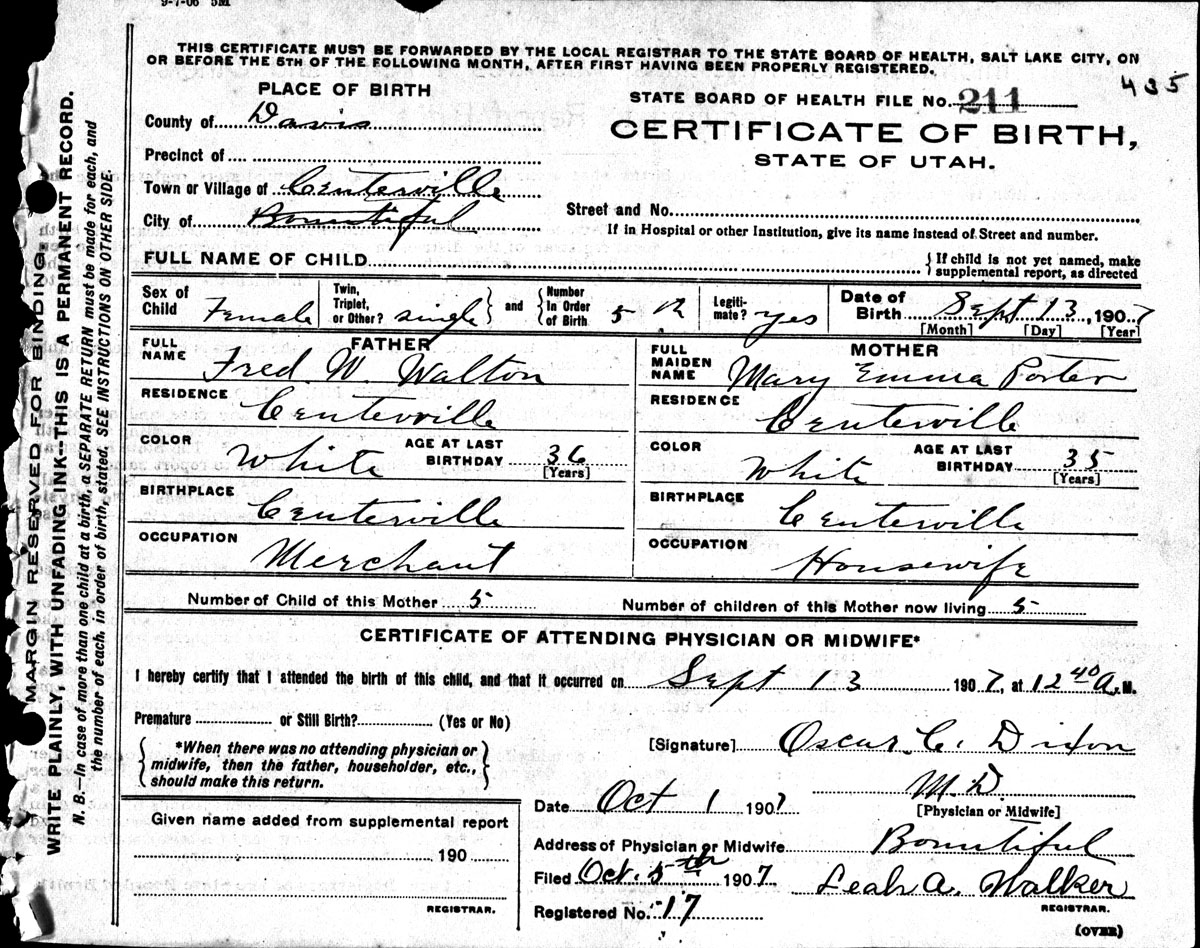 9-7-06 5M
THIS CERTIFICATE MUST BE FORWARDED BY THE LOCAL REGISTRAR TO THE STATE BOARD OF HEALTH, SALT LAKE CITY, ON
OR BEFORE THE 5TH OF THE FOLLOWING MONTH, AFTER FIRST HAVING BEEN PROPERLY REGISTERED.
435
PLACE OF BIRTH
STATE BOARD OF HEALTH FILE No. 211
County of Davis
CERTIFICATE OF BIRTH,
STATE OF UTAH.
Precinct of
Town or Village of Centerville
City of Bountiful
Street and No.
If in Hospital or other Institution, give its name instead of Street and number.
FULL NAME OF CHILD
{ If child is not yet named, make
supplemental report, as directed
Sex of Child Female
Twin, Triplet, or Other? single } and { Number In Order of Birth 5th
Legitimate? yes
Date of Birth Sept 13, 1907
[Month] [Day] [Year]
FATHER
FULL NAME Fred. W. Walton
MOTHER
FULL MAIDEN NAME Mary Emma Porter
RESIDENCE Centerville
RESIDENCE Centerville
COLOR White AGE AT LAST BIRTHDAY 36 [Years]
COLOR White AGE AT LAST BIRTHDAY 35 [Years]
BIRTHPLACE Centerville
BIRTHPLACE Centerville
OCCUPATION Merchant
OCCUPATION Housewife
Number of Child of this Mother 5
Number of children of this Mother now living 5
CERTIFICATE OF ATTENDING PHYSICIAN OR MIDWIFE*
I hereby certify that I attended the birth of this child, and that it occurred on Sept 13 1907, at 12 40 A.M.
Premature or Still Birth? (Yes or No)
{ *When there was no attending physician or
midwife, then the father, householder, etc.,
should make this return. }
[Signature] Oscar. C. Dixon
M.D.
[Physician or Midwife]
Date Oct 1 1907
Given name added from supplemental report
190
REGISTRAR.
Address of Physician or Midwife Bountiful
Filed Oct. 5th 1907 Leah A. Walker
REGISTRAR.
Registered No. 17
(OVER)
MARGIN RESERVED FOR BINDING.
WRITE PLAINLY, WITH UNFADING INK--THIS IS A PERMANENT RECORD.
N. B.--In case of more than one child at a birth, a SEPARATE RETURN must be made for each, and
the number of each, in order of birth, stated. SEE INSTRUCTIONS ON OTHER SIDE.